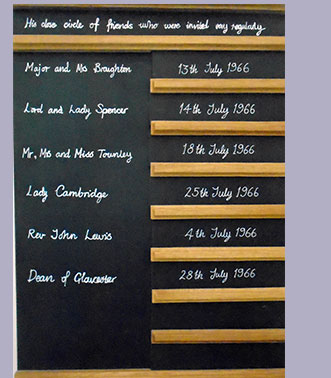 His close circle of friends who were invited very regularly.
Major and Mrs Broughton 13th July 1966
Lord and Lady Spencer 14th July 1966
Mr, Mrs and Miss Townley 18th July 1966
Lady Cambridge 25th July 1966
Rev John Lewis 4th July 1966
Dean of Gloucester 28th July 1966